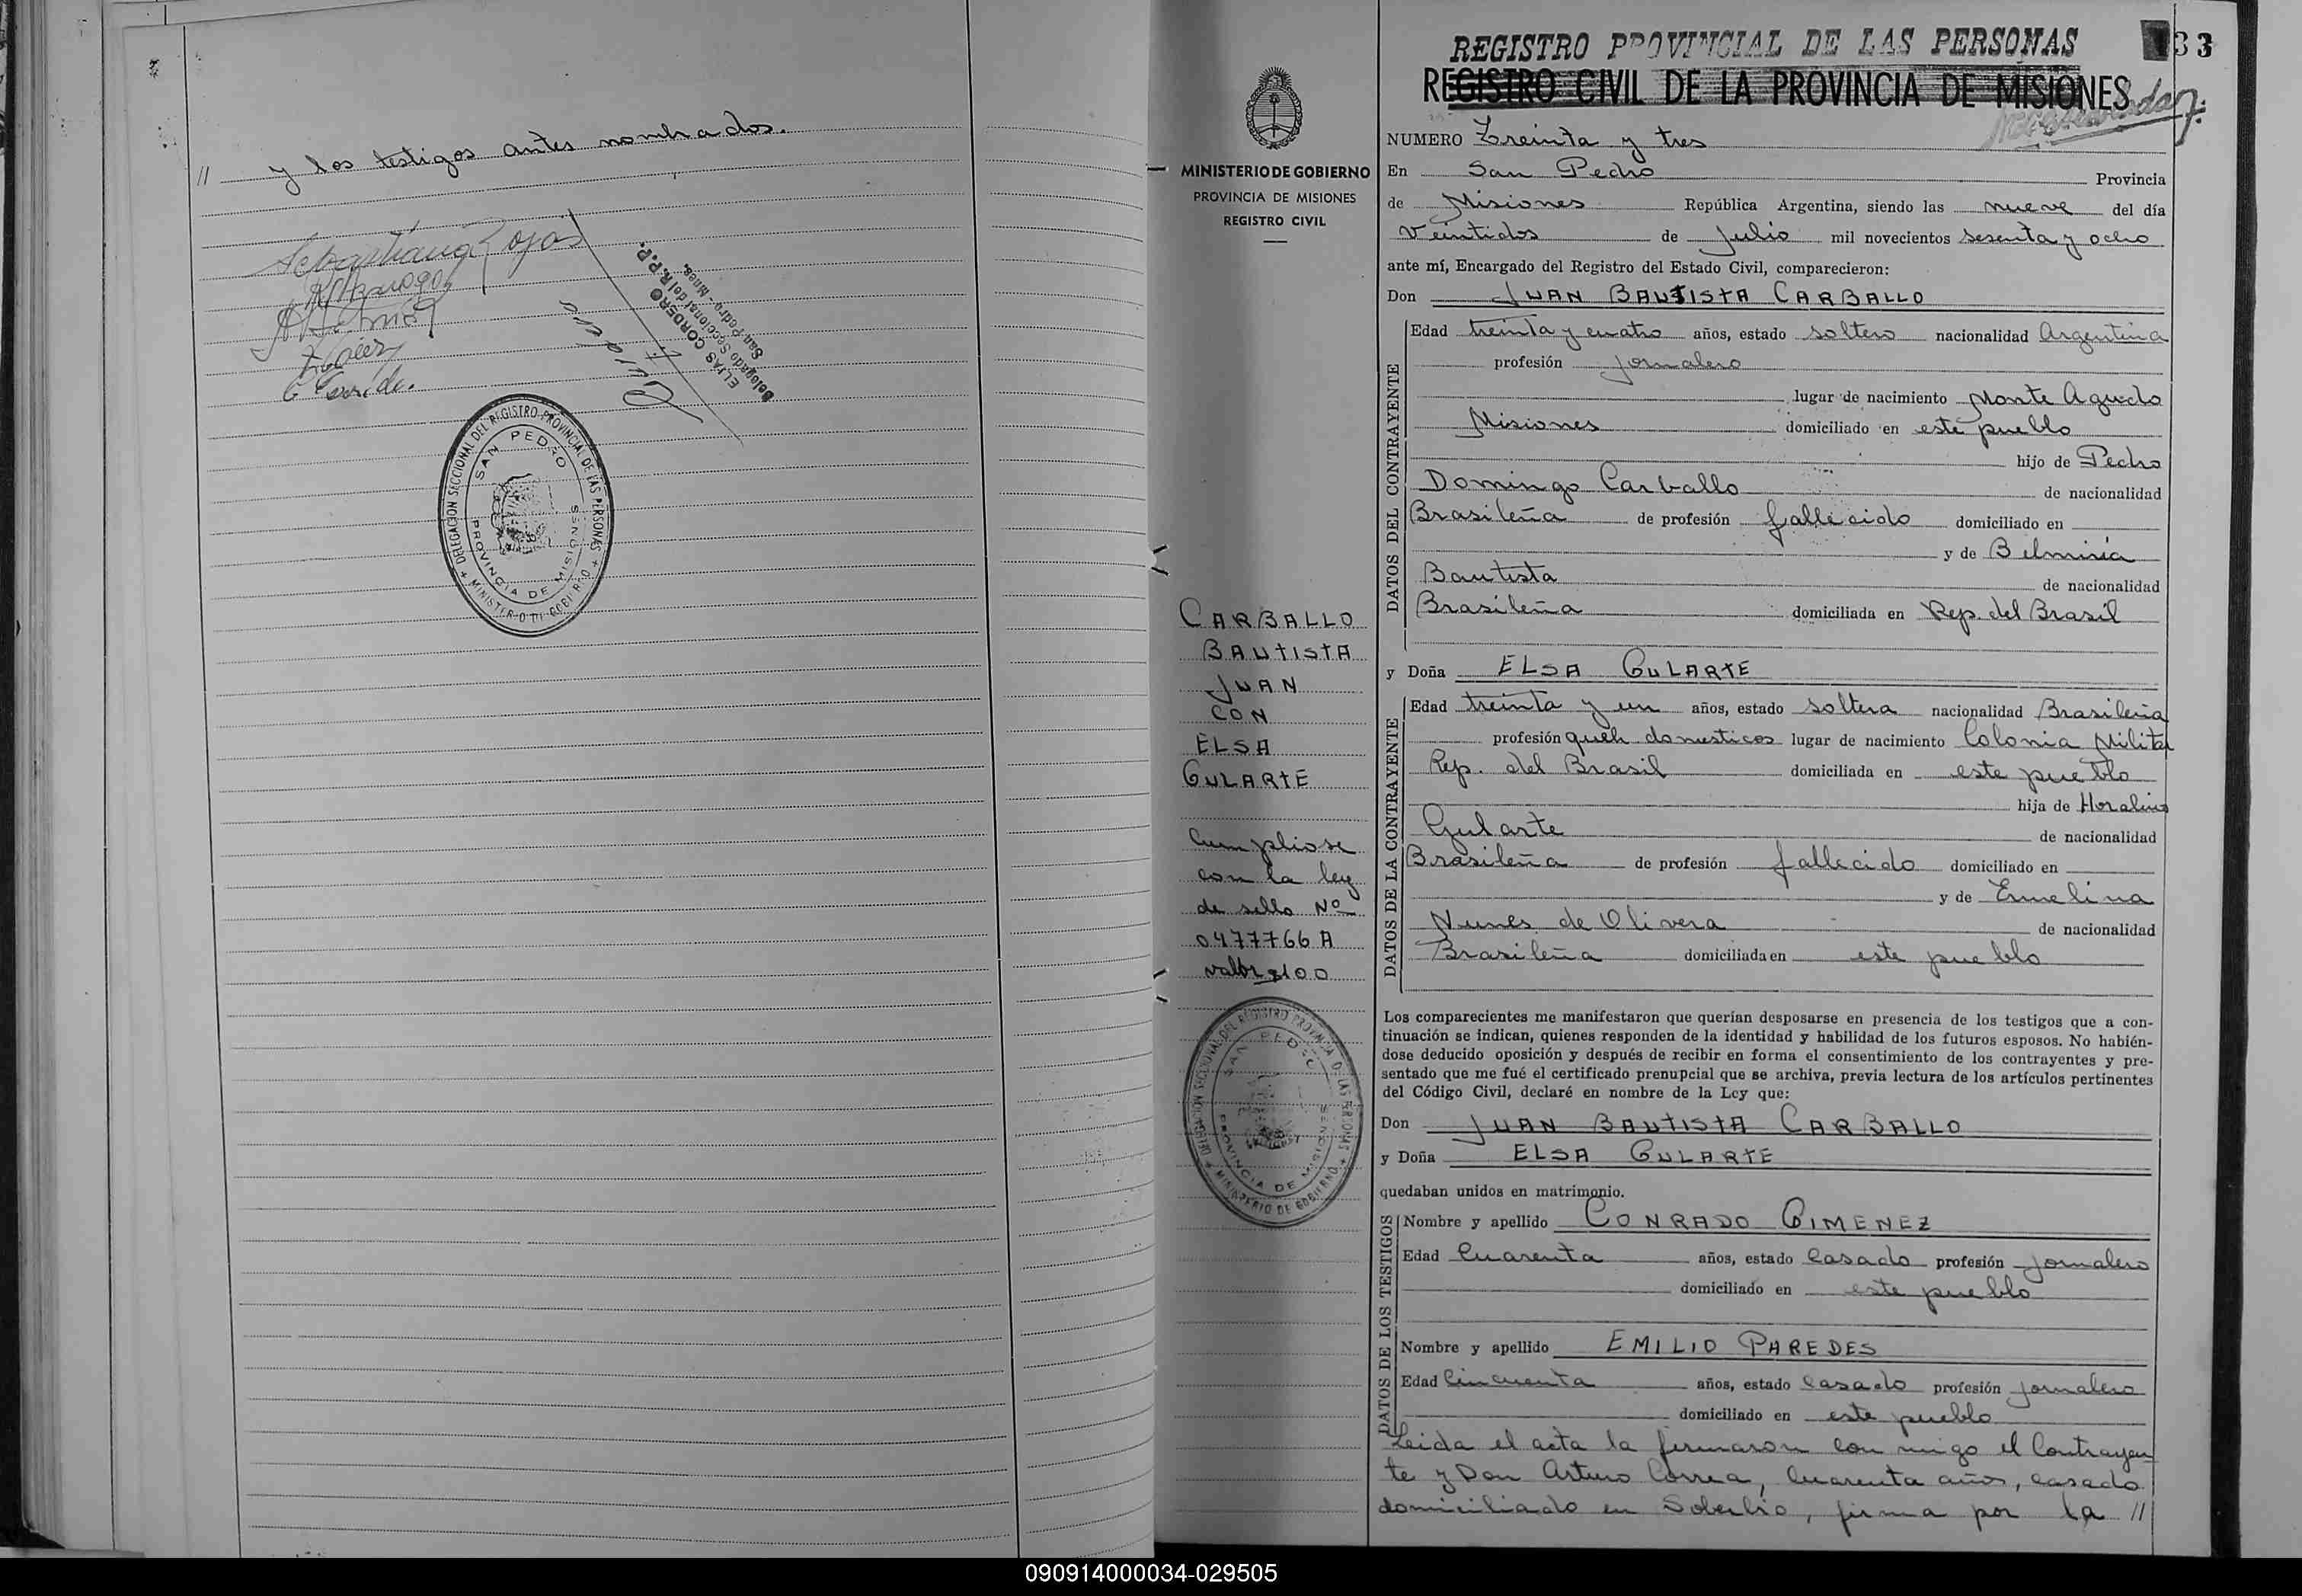 // y los testigos antes nombrados.
Sebastiana Rojas
ELIAS CORDERO
Delegado Seccional del R.P.P.
San Pedro - Mnes.
+ DELEGACION SECCIONAL DEL REGISTRO PROVINCIAL DE LAS PERSONAS + MINISTERIO DE GOBIERNO
SAN PEDRO
PROVINCIA DE MISIONES
MINISTERIO DE GOBIERNO
PROVINCIA DE MISIONES
REGISTRO CIVIL
CARBALLO
BAUTISTA
JUAN
CON
ELSA
GULARTE
Cumpliose
con la ley
de sello Nº
0477766 A
valor $100
+ DELEGACION SECCIONAL DEL REGISTRO PROVINCIAL DE LAS PERSONAS + MINISTERIO DE GOBIERNO
SAN PEDRO
PROVINCIA DE MISIONES
REGISTRO PROVINCIAL DE LAS PERSONAS
33
REGISTRO CIVIL DE LA PROVINCIA DE MISIONES
NUMERO Treinta y tres
En San Pedro Provincia
de Misiones República Argentina, siendo las nueve del día
Veintidos de Julio mil novecientos sesenta y ocho
ante mí, Encargado del Registro del Estado Civil, comparecieron:
Don JUAN BAUTISTA CARBALLO
DATOS DEL CONTRAYENTE
Edad treinta y cuatro años, estado soltero nacionalidad Argentina
profesión jornalero
lugar de nacimiento Monte Agudo
Misiones domiciliado en este pueblo
hijo de Pedro
Domingo Carballo de nacionalidad
Brasileña de profesión fallecido domiciliado en
y de Belmiria
Bautista de nacionalidad
Brasileña domiciliada en Rep. del Brasil
y Doña ELSA GULARTE
DATOS DE LA CONTRAYENTE
Edad treinta y un años, estado soltera nacionalidad Brasileña
profesión queh domesticos lugar de nacimiento Colonia Militar
Rep. del Brasil domiciliada en este pueblo
hija de Horalino
Gularte de nacionalidad
Brasileña de profesión fallecido domiciliado en
y de Ermelina
Nunes de Olivera de nacionalidad
Brasileña domiciliada en este pueblo
Los comparecientes me manifestaron que querían desposarse en presencia de los testigos que a con-
tinuación se indican, quienes responden de la identidad y habilidad de los futuros esposos. No habién-
dose deducido oposición y después de recibir en forma el consentimiento de los contrayentes y pre-
sentado que me fué el certificado prenupcial que se archiva, previa lectura de los artículos pertinentes
del Código Civil, declaré en nombre de la Ley que:
Don JUAN BAUTISTA CARBALLO
y Doña ELSA GULARTE
quedaban unidos en matrimonio.
DATOS DE LOS TESTIGOS
Nombre y apellido CONRADO GIMENEZ
Edad Cuarenta años, estado casado profesión jornalero
domiciliado en este pueblo
Nombre y apellido EMILIO PAREDES
Edad Cincuenta años, estado casado profesión jornalero
domiciliado en este pueblo
Leida el acta la firmaron con migo el Contrayen
te y Don Arturo Correa, cuarenta años, casado
domiciliado en Soberbio, firma por la //
090914000034-029505